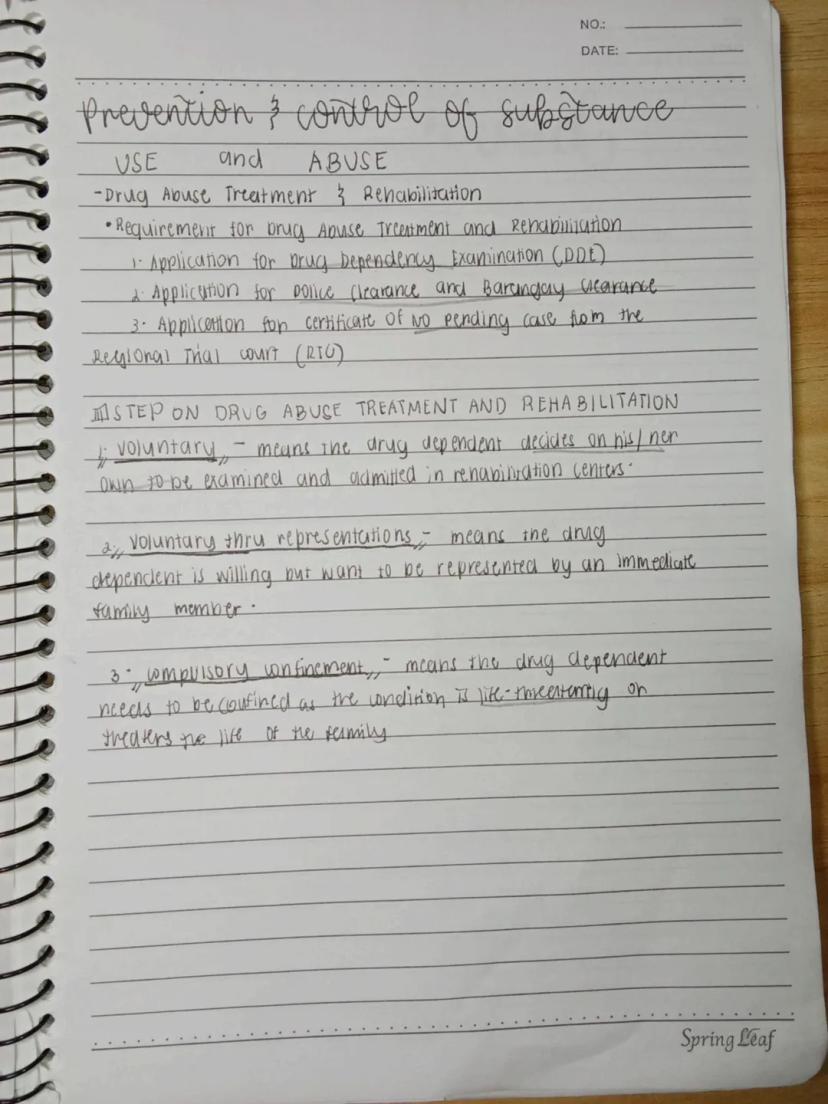 NO.:
DATE:
Prevention & control of substance
USE and ABUSE
-Drug Abuse Treatment & Rehabilitation
•Requirement for Drug Abuse Treatment and Rehabilitation
1. Application for Drug Dependency Examination (DDE)
2. Application for police clearance and Barangay clearance
3. Application for certificate of NO pending case from the
Regional Trial court (RTC)
STEP ON DRUG ABUSE TREATMENT AND REHABILITATION
1. voluntary - means the drug dependent decides on his/her
own to be examined and admitted in rehabilitation centers.
2. voluntary thru representations - means the drug
dependent is willing but want to be represented by an immediate
family member.
3. compulsory confinement - means the drug dependent
needs to be confined as the condition is life-threatening or
the life of the family
Spring Leaf